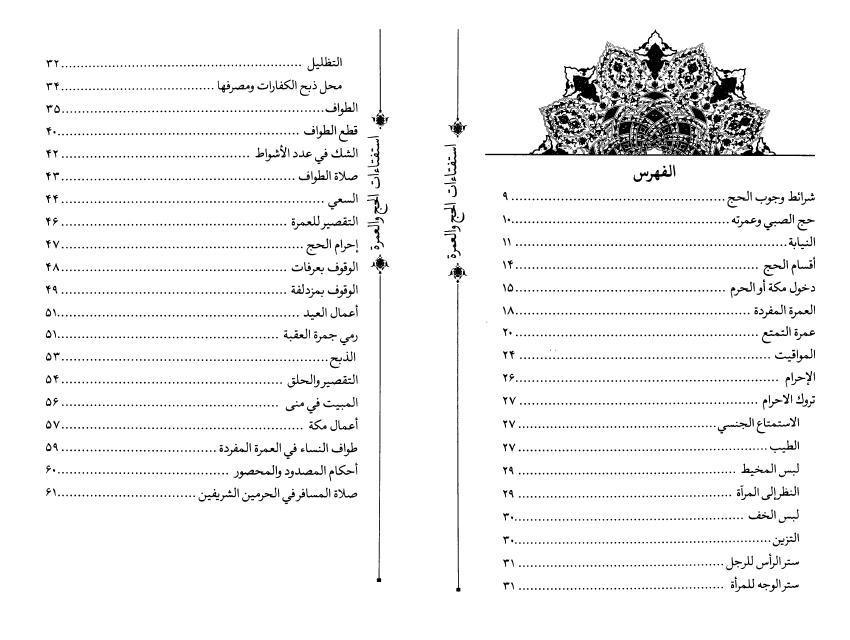 الفهرس
شرائط وجوب الحج ........ ۹
حج الصبي وعمرته ........ ۱۰
النيابة ........ ۱۱
أقسام الحج ........ ۱۴
دخول مكة أو الحرم ........ ۱۵
العمرة المفردة ........ ۱۸
عمرة التمتع ........ ۲۰
المواقيت ........ ۲۴
الإحرام ........ ۲۶
تروك الاحرام ........ ۲۷
الاستمتاع الجنسي ........ ۲۷
الطيب ........ ۲۷
لبس المخيط ........ ۲۹
النظر إلى المرأة ........ ۲۹
لبس الخف ........ ۳۰
التزين ........ ۳۰
ستر الرأس للرجل ........ ۳۱
ستر الوجه للمرأة ........ ۳۱
استفتاءات الحج والعمرة
استفتاءات الحج والعمرة
التظليل ........ ۳۲
محل ذبح الكفارات ومصرفها ........ ۳۴
الطواف ........ ۳۵
قطع الطواف ........ ۴۰
الشك في عدد الأشواط ........ ۴۲
صلاة الطواف ........ ۴۳
السعي ........ ۴۴
التقصير للعمرة ........ ۴۶
إحرام الحج ........ ۴۷
الوقوف بعرفات ........ ۴۸
الوقوف بمزدلفة ........ ۴۹
أعمال العيد ........ ۵۱
رمي جمرة العقبة ........ ۵۱
الذبح ........ ۵۳
التقصير والحلق ........ ۵۴
المبيت في منى ........ ۵۶
أعمال مكة ........ ۵۷
طواف النساء في العمرة المفردة ........ ۵۹
أحكام المصدود والمحصور ........ ۶۰
صلاة المسافر في الحرمين الشريفين ........ ۶۱